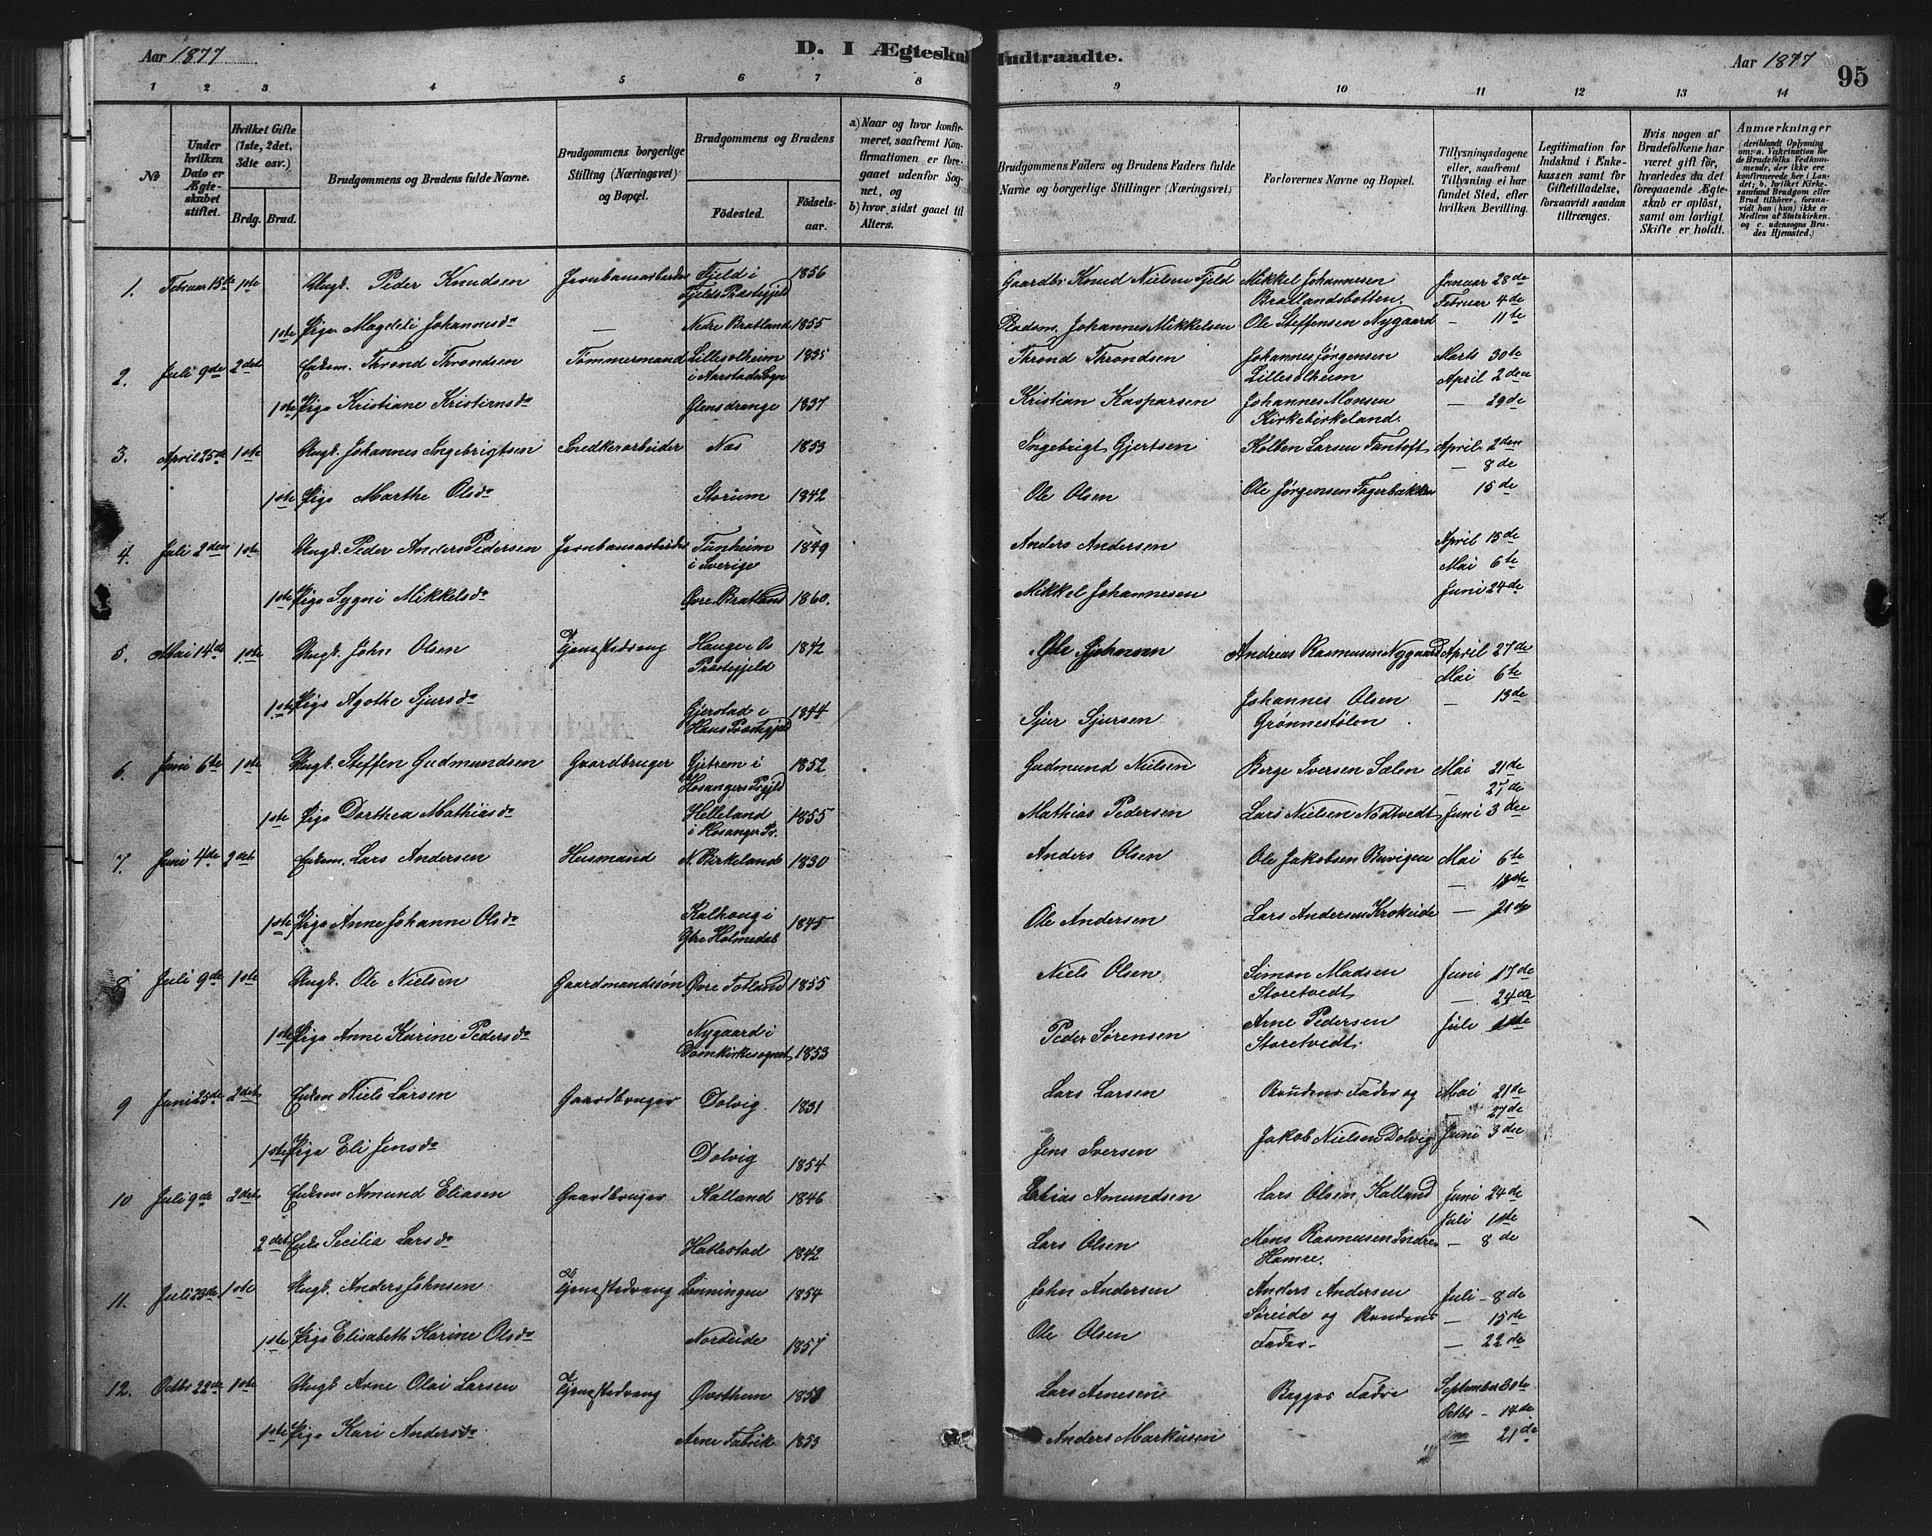 Aar 1877
D. I Ægteskab Indtraadte.
Aar 1877
95
1 2 3 4 5 6 7 8 9 10 11 12 13 14
No
Under hvilken Dato er Ægteskabet stiftet.
Hvilket Gifte (1ste, 2det, 3die osv.)
Brdg. Brud.
Brudgommens og Brudens fulde Navne.
Brudgommens borgerlige Stilling (Næringsvei) og Bopæl.
Brudgommens og Brudens
Födested.
Födselsaar.
a) Naar og hvor konfirmeret, saafremt Konfirmationen er foregaaet udenfor Sognet, og
b) hvor sidst gaaet til Alters.
Brudgommens Faders og Brudens Faders fulde Navne og borgerlige Stillinger (Næringsvei)
Forlovernes Navne og Bopæl.
Tillysningsdagene eller, saafremt Tillysning ei har fundet Sted, efter hvilken Bevilling.
Legitimation for Indskud i Enkekassen samt for Giftetilladelse, forsaavidt saadan tiltrænges.
Hvis nogen af Brudefolkene har været gift för, hvorledes da det foregaaende Ægteskab er oplöst, samt om lovligt Skifte er holdt.
Anmærkninger (deriblandt Oplysning om: a. Vakcination for de Brudefolks Vedkommende, der ikke ere konfirmerede her i Landet; b. hvilket Kirkesamfund Brudgom eller Brud tilhörer, forsaavidt han (hun) ikke er Medlem af Statskirken, og c. udensogns Brudes Hjemsted.)
1. Februar 15de 1ste Ungk. Peder Knudsen Jernbanearbeider Fjeld i Fjelds Præstegjeld 1856 Gaardbr. Knud Nielsen Fjeld Mikkel Johannesen Bratlandsbotten Januar 28de Februar 4de
1ste Pige Magdeli Johannesda — Nedre Bratland 1855 Pladsm. Johannes Mikkelsen Ole Steffensen Nygaard — 11te
2. Juli 9de 2det Enkem. Thrond Throndsen Tömmermand Lillesolheim i Aarstad Sogn 1835 Thrond Throndsen Johannes Jørgensen Lillesolheim Marts 30te April 2den
1ste Pige Kristiane Kristiensda 1837 Kristian Kasparsen Johannes Monsen Kirkebirkeland. — 29de
3. April 25de 1ste Ungk. Johannes Ingebrigtsen Snedkerarbeider Nes 1853 Ingebrigt Gjertsen Kolben Larsen Fantoft April 2den — 8de
1ste Pige Marthe Olsda Storum 1842 Ole Olsen Ole Jørgensen Fagerbakken 15de
4. Juli 2den 1ste Ungk. Peder Anders Pedersen Jernbanearbeider Tunheim i Sverige 1849 Anders Andersen April 15de Mai 6te
1ste Pige Sygni Mikkelsda Øvre Bratland 1860. Mikkel Johannesen Juni 24de
5. Mai 14de 1ste Ungk. John Olsen Tjenestedreng Hauge i Præstegjeld 1842 Ole Johnsen Andreas Rasmusen Nygaard April 27de Mai 6te
1ste Pige Agothe Sjursda Gjerstad i Haus Præstegjeld 1844 Sjur Sjursen Johannes Olsen Grønnestølen — 13de
6. Juni 6te 1ste Ungk. Steffen Gudmundsen Gaardbruger Gjetrem i Hosangers Prgjld 1852 Gudmund Nielsen Berge Iversen Sælen Mai 21de — 27de
1ste Pige Dorthea Mathiasda Helleland i Hosanger Pr. 1855 Mathias Pedersen Lars Nielsen Nödtvedt Juni 3die
7. Juni 4de 2det Enkem. Lars Andersen Husmand N. Birkeland 1830 Anders Olsen Ole Jakobsen Buvigen Mai 6te — 13de
1ste Pige Anne Johanne Olsda Kalhoug i Ytre Holmedal 1845 Ole Andersen Lars Andersen Krokeide — 21de
8. Juli 9de 1ste Ungk. Ole Nielsen Gaardmandssøn Øvre Totland 1855 Niels Olsen Simon Madsen Storetvedt Juni 17de — 24de
1ste Pige Anne Karine Pedersda Nygaard i Domkirkesognet 1853 Peder Sörensen Arne Pedersen Storetvedt. Juli 1ste
9 Juni 25de 2det Enkem Niels Larsen Gaardbruger Dolvig 1831 Lars Larsen Brudens Fader og Mai 21de 27de
1ste Pige Eli Jensda Dolvig 1854 Jens Iversen Jakob Nielsen Dolvig Juni 3die
10 Juli 9de 2det Enkem Amund Eliasen Gaardbruger Kalland 1846 Elias Amundsen Lars Olsen Kalland Juni 24de Juli 1ste
2det Enke Secilia Larsda Hatlestad 1842 Lars Olsen Mons Rasmusen Indre Hamre. — 8de
11. Juli 23de 1ste Ungk. Anders Johnsen Tjenestedreng Lönningen 1854 John Andersen Anders Andersen Søreide og Brudens Fader. Juli — 8de — 15de
1ste Pige Elisabeth Karine Olsda Nordeide 1857 Ole Olsen — 22de
12. Octbr 22de 1ste Ungk Arne Olai Larsen Tjenestedreng Øvsthun 1853 Lars Arnesen Begges Fædre September 30te Octbr — 14de
1ste Pige Kari Andersda Arne Fabrik 1853 Anders Markusen 21de